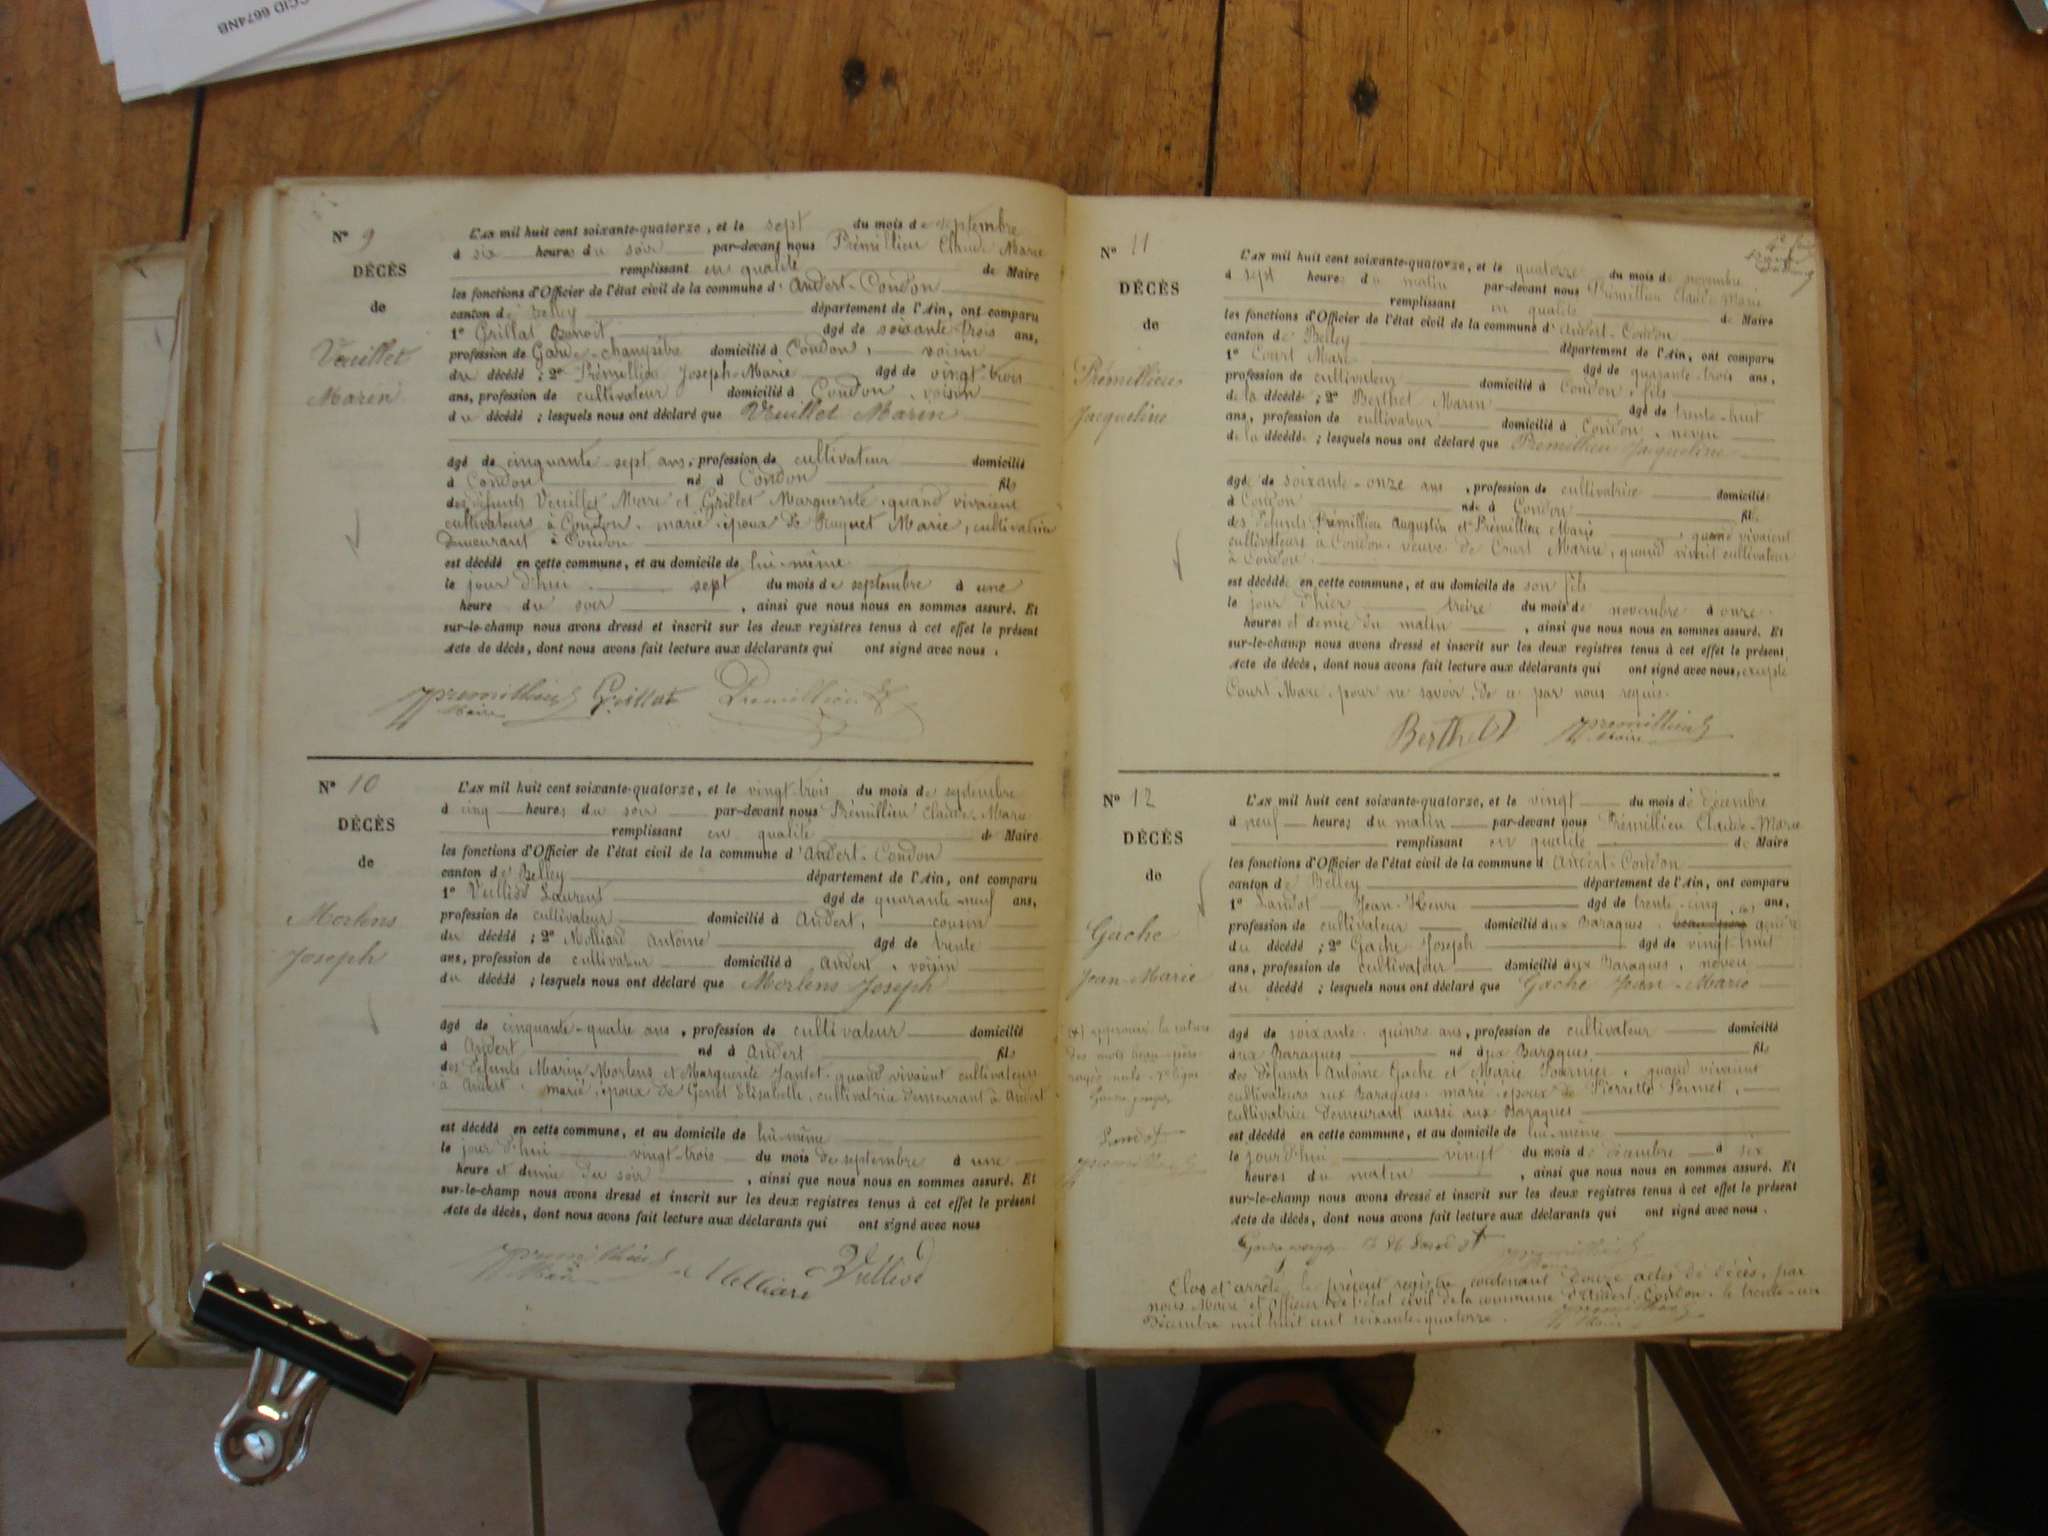 CCID 6674NB
N° 9
DÉCÈS
de
Veuillet
Marin
L'AN mil huit cent soixante-quatorze, et le sept du mois de septembre
à six heures du soir par-devant nous Prémillieu Claude Marie
remplissant en qualité de Maire
les fonctions d'Officier de l'état civil de la commune d'Andert-Condon
canton de Belley département de l'Ain, ont comparu
1° Grillat Benoit âgé de soixante trois ans,
profession de Garde-champêtre domicilié à Condon, voisin
du décédé ; 2° Prémillieu Joseph-Marie âgé de vingt-trois
ans, profession de cultivateur domicilié à Condon, voisin
du décédé ; lesquels nous ont déclaré que Veuillet Marin
âgé de cinquante sept ans, profession de cultivateur domicilié
à Condon né à Condon fils
des défunts Veuillet Marc et Grillet Marguerite, quand vivaient
cultivateurs à Condon, marié, époux de Marie, cultivatrice
demeurant à Condon
est décédé en cette commune, et au domicile de lui-même
le jour d'hui sept du mois de septembre à une
heure du soir, ainsi que nous nous en sommes assuré. Et
sur-le-champ nous avons dressé et inscrit sur les deux registres tenus à cet effet le présent
Acte de décès, dont nous avons fait lecture aux déclarants qui ont signé avec nous.
Premillieu Grillat Premillieu
Maire
N° 10
DÉCÈS
de
Morlens
Joseph
L'AN mil huit cent soixante-quatorze, et le vingt-trois du mois de septembre
à cinq heures du soir par-devant nous Prémillieu Claude-Marie
remplissant en qualité de Maire
les fonctions d'Officier de l'état civil de la commune d'Andert-Condon
canton de Belley département de l'Ain, ont comparu
1° Vulliod Laurent âgé de quarante-neuf ans,
profession de cultivateur domicilié à Andert, cousin
du décédé ; 2° Molliard Antoine âgé de trente
ans, profession de cultivateur domicilié à Andert, voisin
du décédé ; lesquels nous ont déclaré que Morlens Joseph
âgé de cinquante-quatre ans, profession de cultivateur domicilié
à Andert né à Andert fils
des défunts Marin Morlens et Marguerite Jantet, quand vivaient cultivateurs
à Andert, marié, époux de Genet Elisabelle, cultivatrice demeurant à Andert
est décédé en cette commune, et au domicile de lui-même
le jour d'hui vingt-trois du mois de septembre à une
heure et demie du soir, ainsi que nous nous en sommes assuré. Et
sur-le-champ nous avons dressé et inscrit sur les deux registres tenus à cet effet le présent
Acte de décès, dont nous avons fait lecture aux déclarants qui ont signé avec nous
Premillieu Molliard Vulliod
Maire
N° 11
DÉCÈS
de
Prémillieu
Jacqueline
L'AN mil huit cent soixante-quatorze, et le quatorze du mois de novembre
à sept heures du matin par-devant nous Prémillieu Claude-Marie
remplissant en qualité de Maire
les fonctions d'Officier de l'état civil de la commune d'Andert-Condon
canton de Belley département de l'Ain, ont comparu
1° Court Marc âgé de quarante-trois ans,
profession de cultivateur domicilié à Condon, fils
de la décédée ; 2° Berthet Marin âgé de trente-huit
ans, profession de cultivateur domicilié à Condon, neveu
de la décédée ; lesquels nous ont déclaré que Prémillieu Jacqueline
âgée de soixante-onze ans, profession de cultivatrice domiciliée
à Condon née à Condon fille
des défunts Prémillieu Augustin et Prémillieu Marie, quand vivaient
cultivateurs à Condon, veuve de Court Marin, quand vivait cultivateur
à Condon.
est décédée en cette commune, et au domicile de son fils
le jour d'hier treize du mois de novembre à onze
heures et demie du matin, ainsi que nous nous en sommes assuré. Et
sur-le-champ nous avons dressé et inscrit sur les deux registres tenus à cet effet le présent
Acte de décès, dont nous avons fait lecture aux déclarants qui ont signé avec nous, excepté
Court Marc, pour ne savoir, de ce par nous requis.
Berthet Premillieu
Maire
N° 12
DÉCÈS
de
Gache
Jean-Marie
(x) approuvé la rature
des mots beau-père
rayés nuls
Landot
Premillieu
L'AN mil huit cent soixante-quatorze, et le vingt du mois de décembre
à neuf heures du matin par-devant nous Prémillieu Claude-Marie
remplissant en qualité de Maire
les fonctions d'Officier de l'état civil de la commune d'Andert-Condon
canton de Belley département de l'Ain, ont comparu
1° Landot Jean-Henri âgé de trente-cinq ans,
profession de cultivateur domicilié aux Baraques, beau-père (x) gendre
du décédé ; 2° Gache Joseph âgé de vingt-huit
ans, profession de cultivateur domicilié aux Baraques, neveu
du décédé ; lesquels nous ont déclaré que Gache Jean-Marie
âgé de soixante-quinze ans, profession de cultivateur domicilié
aux Baraques né aux Baraques fils
des défunts Antoine Gache et Marie Fournier, quand vivaient
cultivateurs aux Baraques, marié, époux de Pierrette,
cultivatrice demeurant aussi aux Baraques
est décédé en cette commune, et au domicile de lui-même
le jour d'hui vingt du mois de décembre à six
heures du matin, ainsi que nous nous en sommes assuré. Et
sur-le-champ nous avons dressé et inscrit sur les deux registres tenus à cet effet le présent
Acte de décès, dont nous avons fait lecture aux déclarants qui ont signé avec nous.
Landot Premillieu
Clos et arrêté le présent registre, contenant douze actes de décès, par
nous, Maire et officier de l'état civil de la commune d'Andert-Condon, le trente-un
Décembre mil huit cent soixante-quatorze. Premillieu
Maire